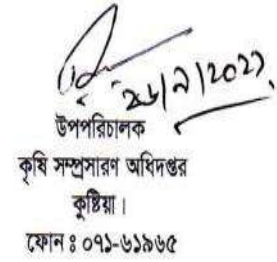 ২৬/৭/২০২২
উপপরিচালক
কৃষি সম্প্রসারণ অধিদপ্তর
কুষ্টিয়া।
ফোন ঃ ০৭১-৬১৯৬৫